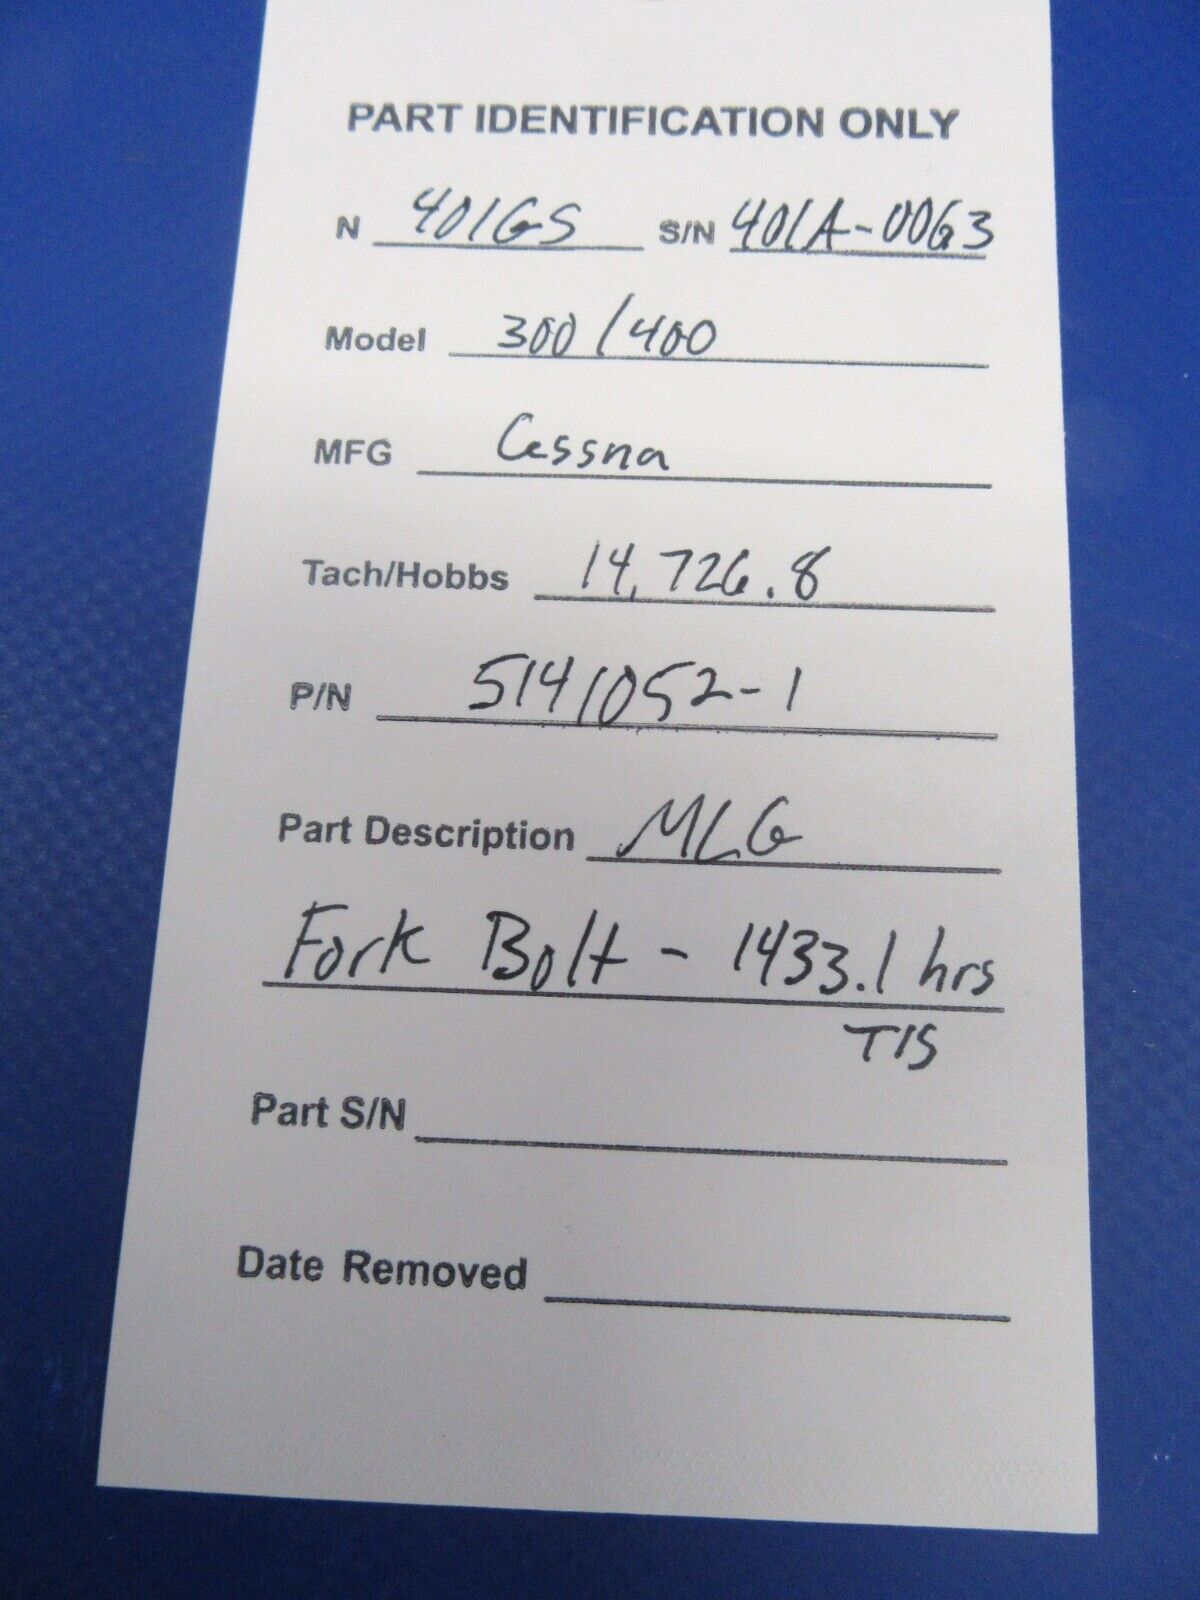 PART IDENTIFICATION ONLY
N 401GS S/N 401A-0063
Model 300/400
MFG Cessna
Tach/Hobbs 14,726.8
P/N 5141052-1
Part Description MLG
Fork Bolt - 1433.1 hrs
TIS
Part S/N
Date Removed